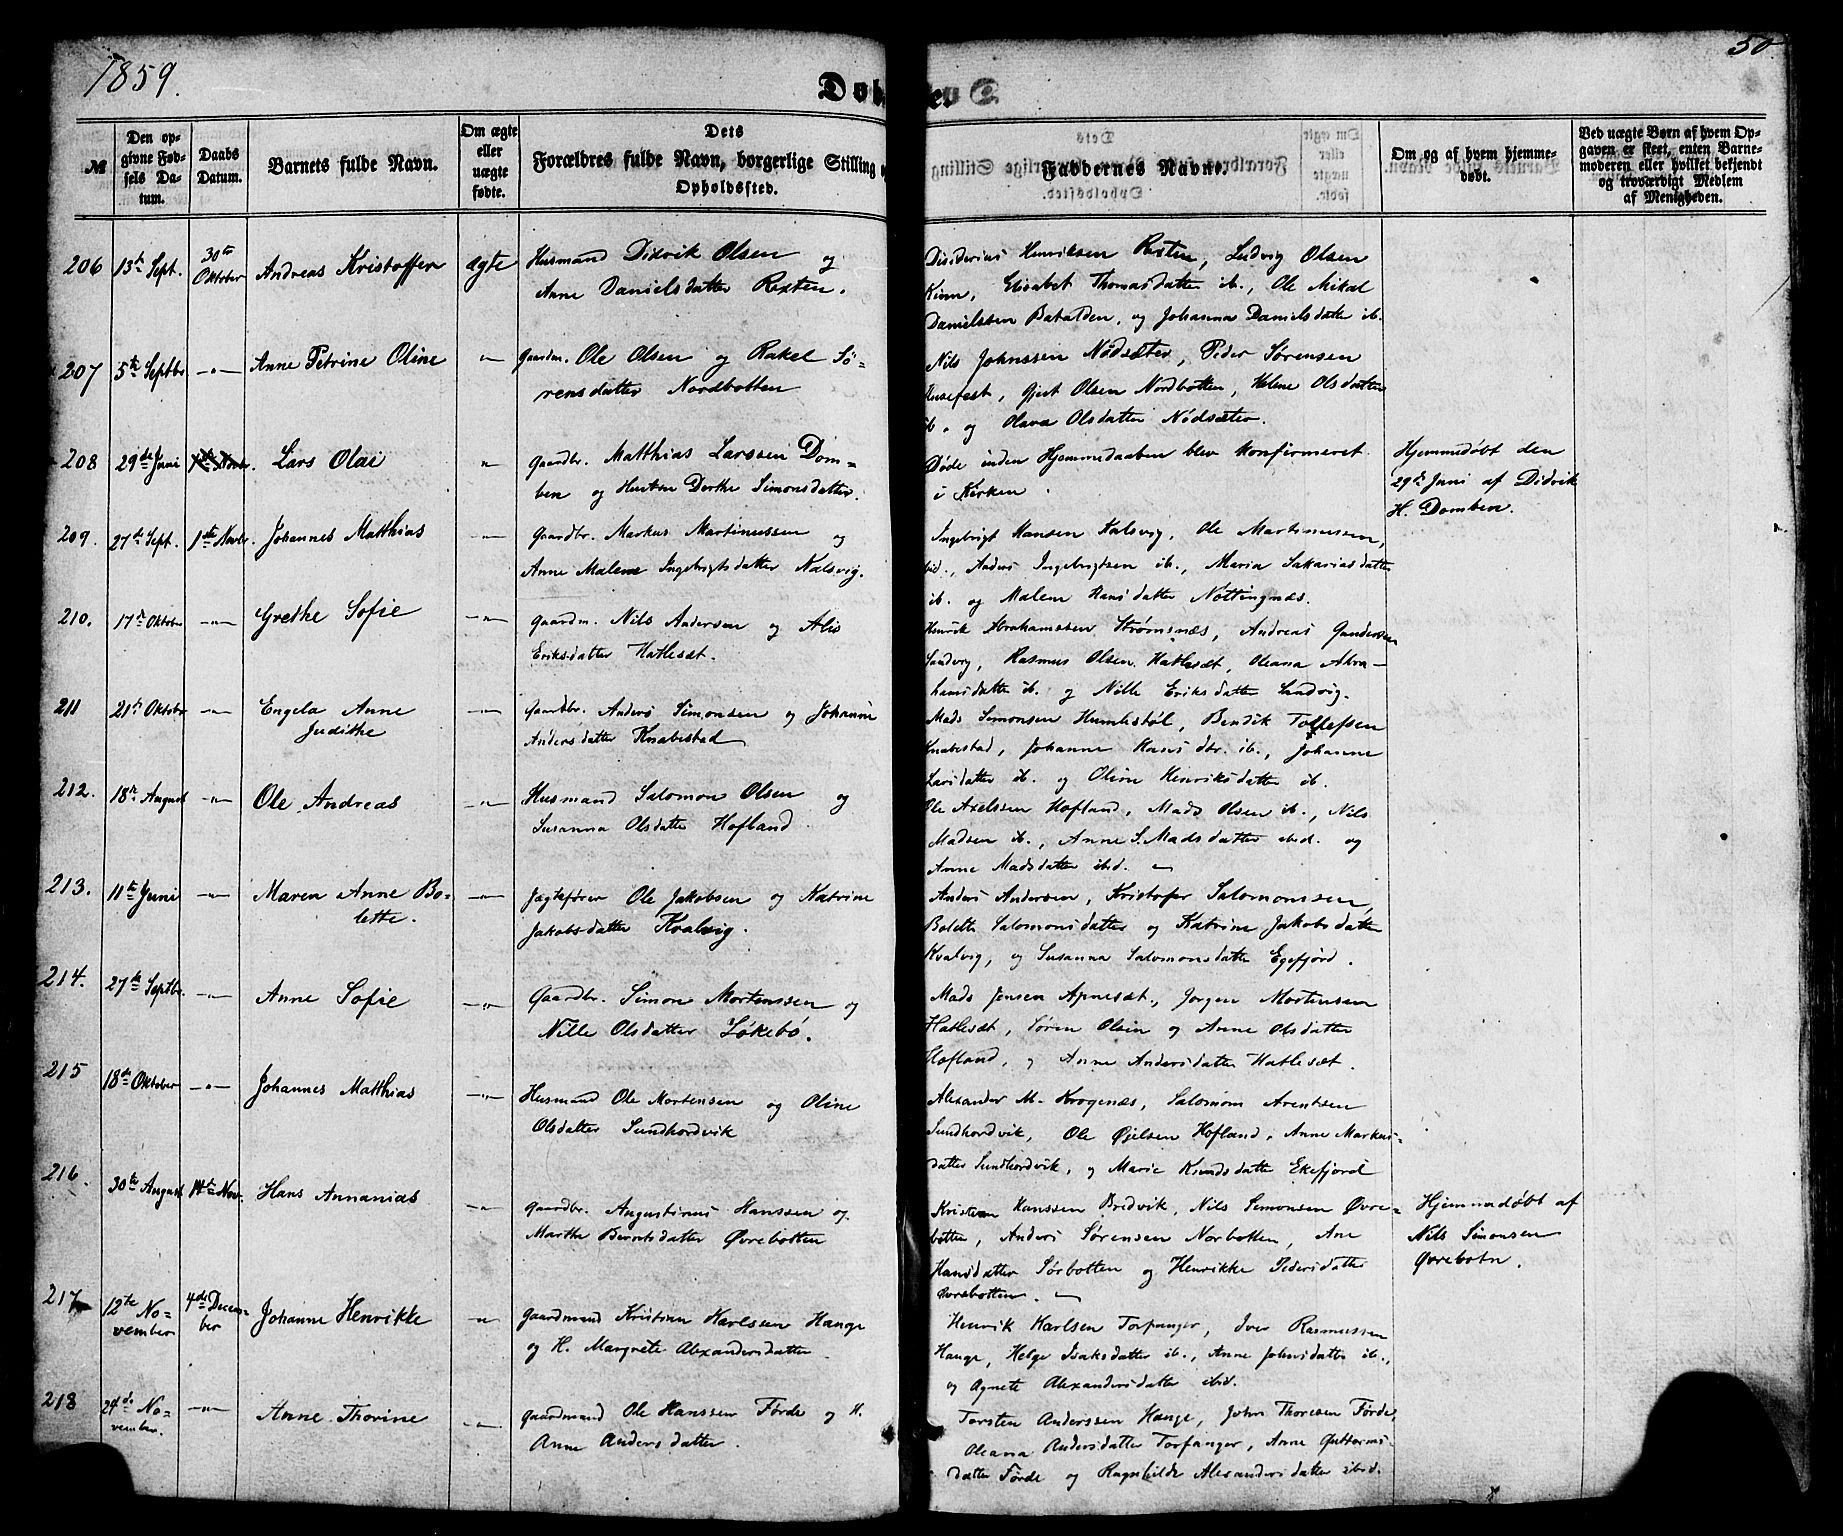 1859.
50.
Døbte
№
Den opgivne Fødsels Datum.
Daabs Datum.
Barnets fulde Navn.
Om ægte eller uægte fødte.
Dets Forældres fulde Navn, borgerlige Stilling
Opholdssted.
Faddernes Navne.
Om og af hvem hjemmedøbt.
Ved uægte Børn af hvem Opgaven er skeet, enten Barnemoderen eller hvilket bekjendt og troværdigt Medlem af Menigheden.
206 13de Sept. 30te Oktober Andreas Kristoffer ægte Husmand Didrik Olsen og
Anne Danielsdatter Rexten.
Disiderius Henriksen Resten, Ludvig Olsen
Kinn, Elisabet Thomasdatter ib., Ole Mikal
Danielssen Batalden, og Johanna Danielsdatter ib.
207 5te Septbr —"— Anne Petrine Oline —"— Gaardm. Ole Olsen og Rakel Sö-
rensdatter Nordbotten
Nils Johnssen Nödsæter, Peder Sörensen
Husefest, Gjert Olsen Nordbotten, Helene Olsdatter
ib. og Olava Olsdatter Nödsæter.
208 29de Juni Lars Olai " Gaardbr. Matthias Larssen Dom-
ben og Hustru Dorthe Simonsdatter.
Døde inden Hjemmedaaben blev konfirmeret
i Kirken.
Hjemmedøbt den
29de Juni af Didrik
H. Domben.
209. 27de Sept. 1ste Novbr. Johannes Matthias —"— Gaardbr. Markus Martinussen og
Anne Malene Ingebrigtsdatter Kalsvig.
Ingebrigt Hansen Kalsvig, Ole Martinussen,
ibid., Anders Ingebrigtsen ib., Maria Sakariasdatter
ib. og Malene Hansdatter Nottingnæs.
210. 17de Oktober —"— Grethe Sofie —"— Gaardm. Nils Andersen og Alis
Eriksdatter Hatleset.
Henrik Abrahamssen Strømsnæs, Andreas Gundersen
Sandvig, Rasmus Olsen Hatlesæt, Oleana Abra-
hamsdatter ib. og Nille Eriksdatter Sandvig.
211 21de Oktober —"— Engela Anne
Judithe —"— Gaardbr. Anders Simonsen og Johanne
Andersdatter Knabestad
Mads Simonsen Humlestöl, Bendik Tollefsen
Knabestad, Johanne Hansdtr. ib., Johanne
Larsdatter ib. og Oline Henriksdatter ib.
212. 18de August —"— Ole Andreas —"— Husmand Salomon Olsen og
Susanna Olsdatter Hofland.
Ole Axelssen Hofland, Mads Olsen ib., Nils
Madsen ib., Anne S. Madsdatter ibid. og
Anne Madsdatter ibid.
213. 11te Juni —"— Maren Anne Bo-
lette. —"— Jægtefører Ole Jakobsen og Katrine
Jakobsdatter Kvalvig.
Anders Andersen, Kristofer Salomonssen,
Bolette Salomonsdatter og Katrine Jakobsdatter
Kvalvig, og Susanna Salomonsdatter Egefjord.
214. 27de Septbr. —"— Anne Sofie —"— Gaardbr. Simon Mortenssen og
Nille Olsdatter Løkebø.
Mads Jensen Apnesæt, Jørgen Mortensen
Hatlesæt, Søren Olsen og Anne Olsdatter
Hofland, og Anne Andersdatter Hatlesæt.
215 18de Oktober —"— Johannes Matthias —"— Husmand Ole Mortensen og Oline
Olsdatter Sundhordvik
Alexander M. Krogenæs, Salomon Arentsen
Sundhordvik, Ole Øjelsen Hofland, Anne Markus-
datter Sundhordvik, og Marie Knudsdatter Ekefjord
216. 30te August 14de Nov. Hans Annanias —"— Gaardbr. Augustinus Hanssen og
Marthe Berntsdatter Øvrebotten
Kristian Hanssen Bredvik, Nils Simonsen Øvre-
botten, Anders Sørensen Norbotten, Ane
Hansdatter Sørbotten og Henrikke Pedersdatter
Øvrebotten.
Hjemmedøbt af
Nils Simonsen
Øvrebotn.
217 12te No-
vember 4de Decem-
ber Johanne Henrikke —"— Gaardmand Kristian Karlssen Hauge
og H. Margrete Alexandersdatter
Henrik Karlsen Torfanger, Iver Rasmussen
Hauge, Helge Isaksdatter ib., Anne Johnsdatter ib.,
og Agnete Alexandersdatter ibid.
218 24de No-
vember. —"— Anne Thorine —"— Gaardmand Ole Hanssen Førde og H.
Anne Andersdatter.
Torsten Anderssen Hauge, John Thoresen Førde,
Oleana Andersdatter Torfanger, Anne Guttorms-
datter Førde og Ragnhilde Alexandersdatter ibid.